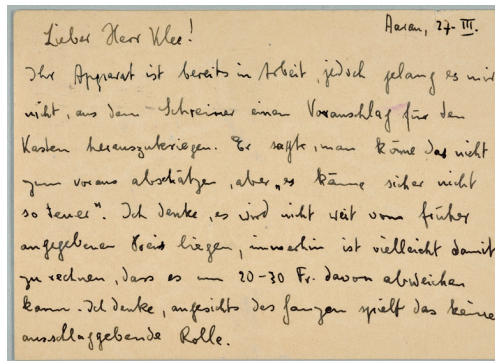 Aarau, 27. III.
Lieber Herr Klee!
Ihr Apparat ist bereits in Arbeit, jedoch gelang es mir
nicht, aus dem Schreiner einen Voranschlag für den
Kasten herauszukriegen. Er sagte, man könne das nicht
zum voraus abschätzen, aber „es käme sicher nicht
so teuer“. Ich denke, es wird nicht weit vom früher
angegebenen Preis liegen, immerhin ist vielleicht damit
zu rechnen, dass es um 20-30 Fr. davon abweichen
kann. Ich denke, angesichts des ganzen spielt das keine
ausschlaggebende Rolle.